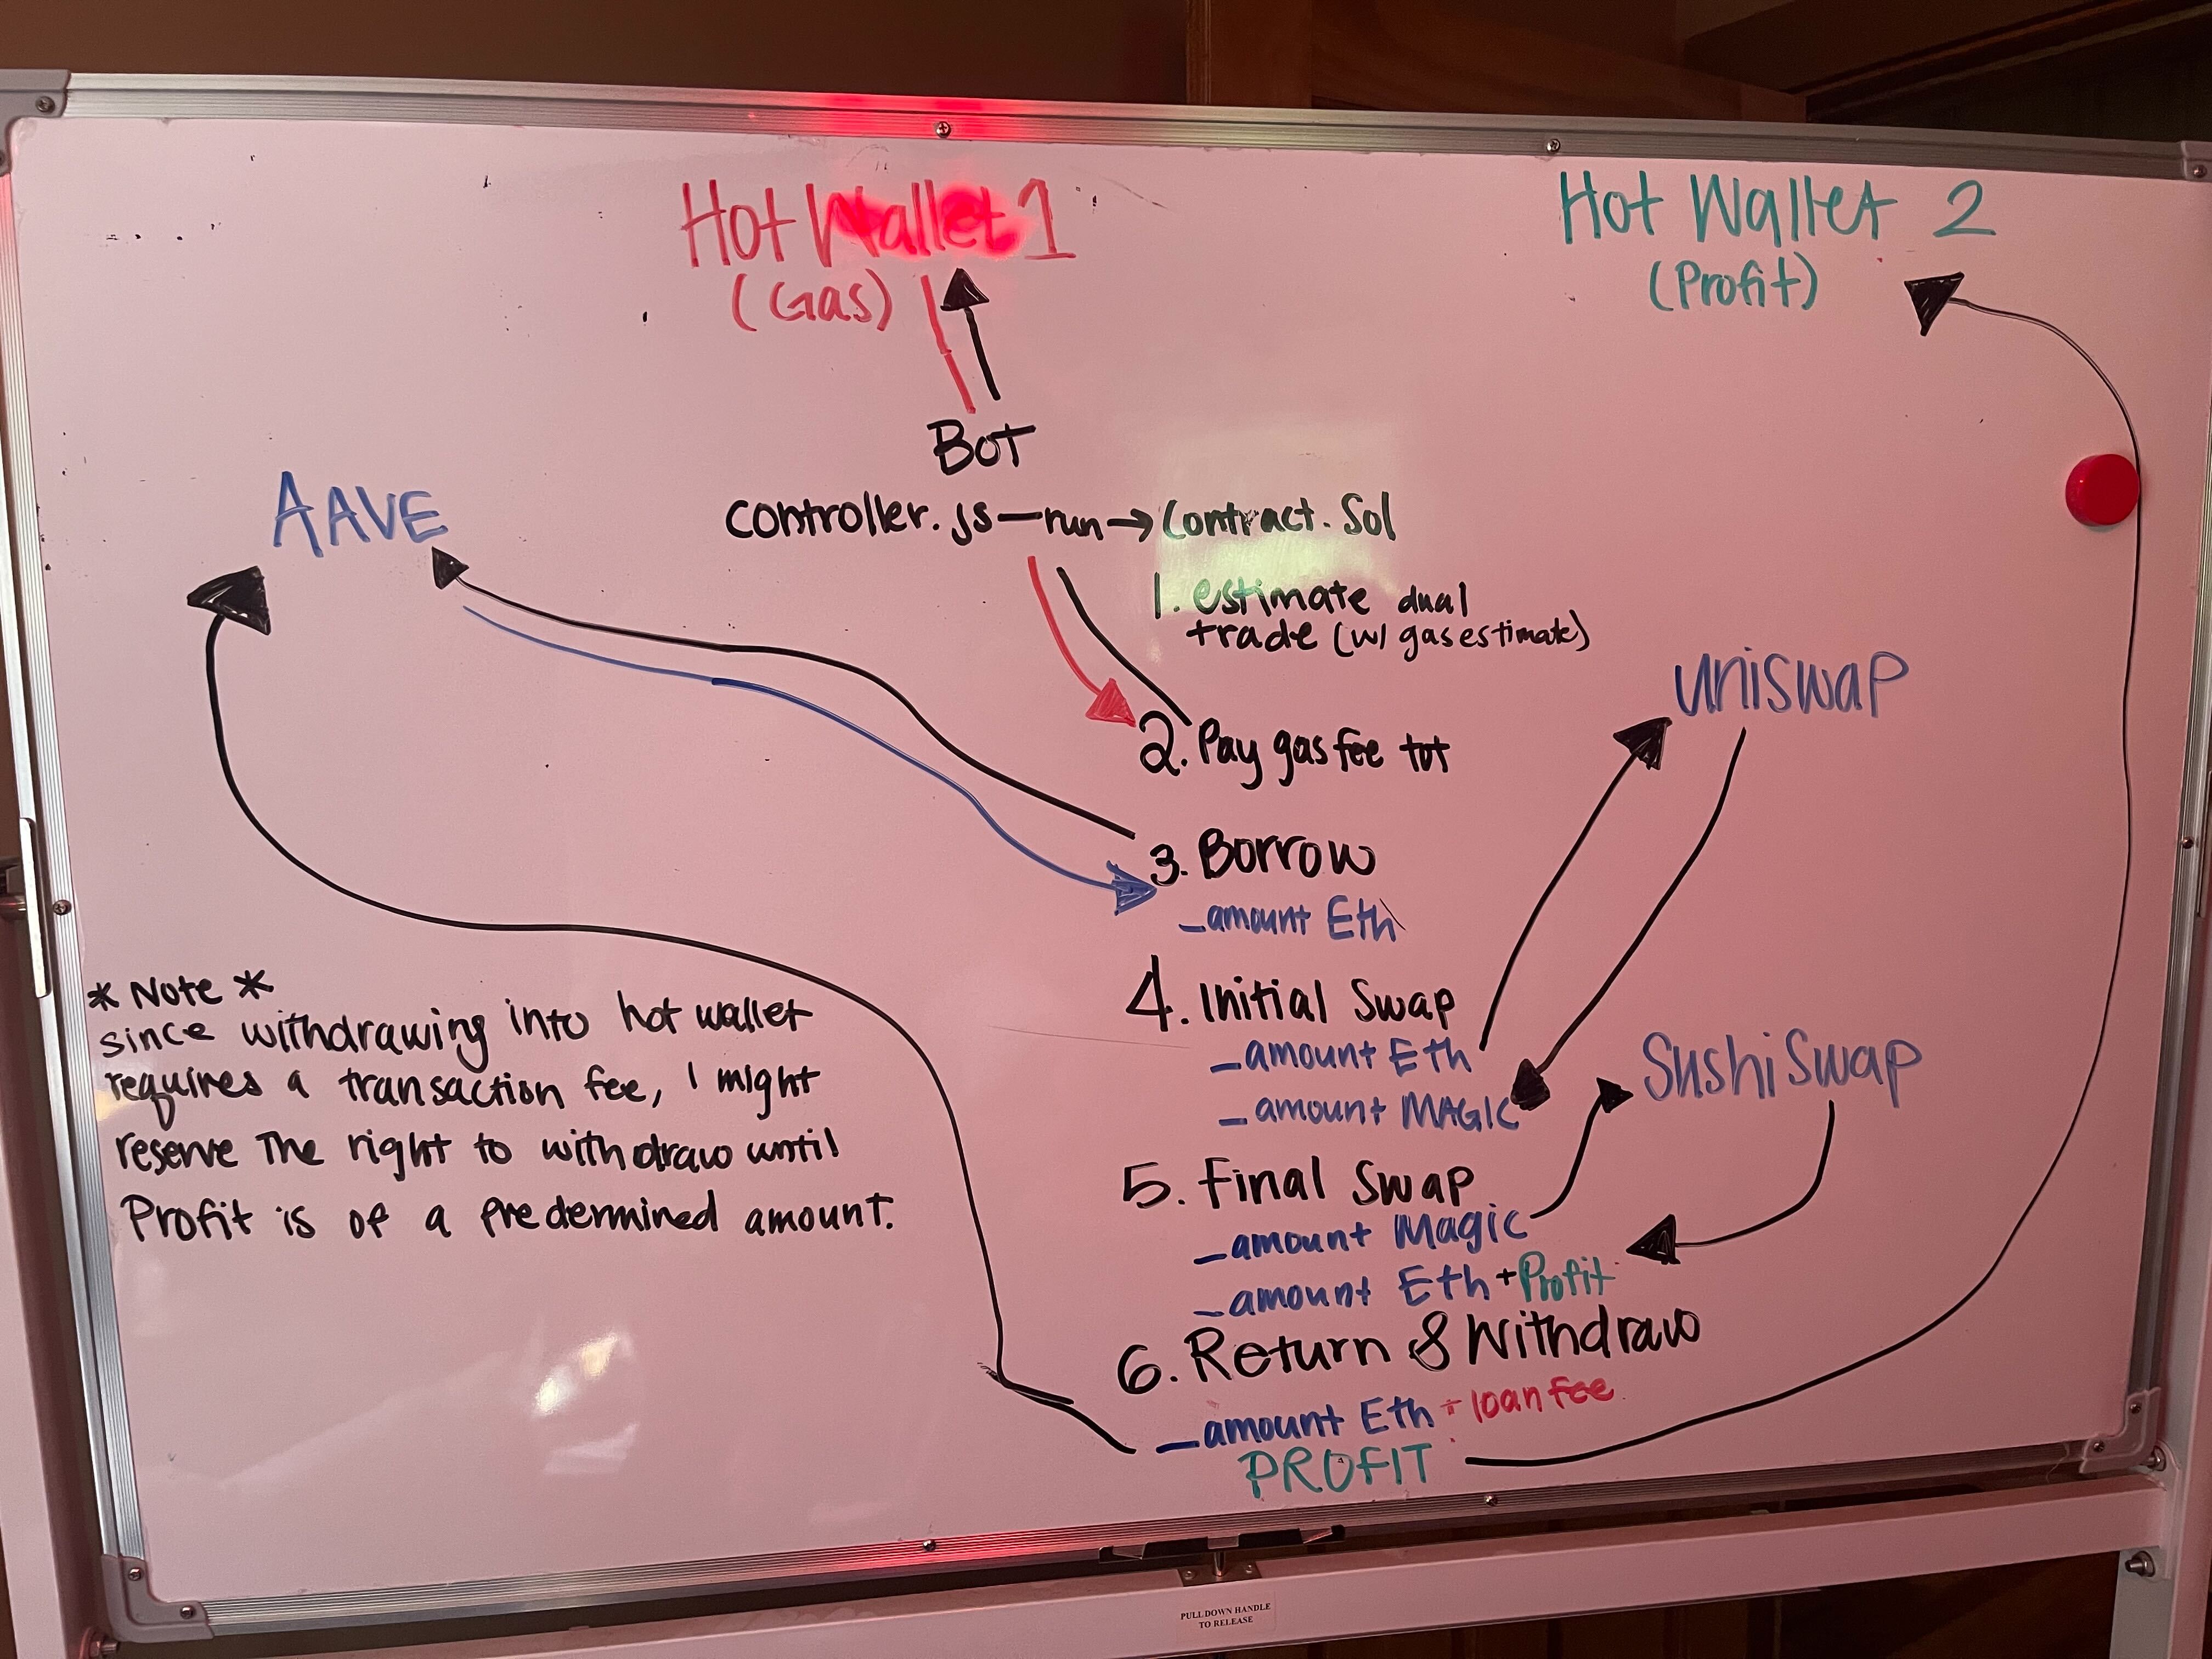 Hot Wallet 1
(Gas)
Hot Wallet 2
(Profit)
Bot
AAVE
controller.js — run → Contract.Sol
1. estimate dual
trade (w/ gas estimate)
uniswap
2. Pay gas fee tot
3. Borrow
_amount Eth
4. Initial Swap
_amount Eth
_amount MAGIC
SushiSwap
5. Final Swap
_amount Magic
_amount Eth + Profit
6. Return & Withdraw
_amount Eth + loan fee
PROFIT
* Note *
since withdrawing into hot wallet
requires a transaction fee, I might
reserve the right to withdraw until
Profit is of a predermined amount.
PULL DOWN HANDLE
TO RELEASE